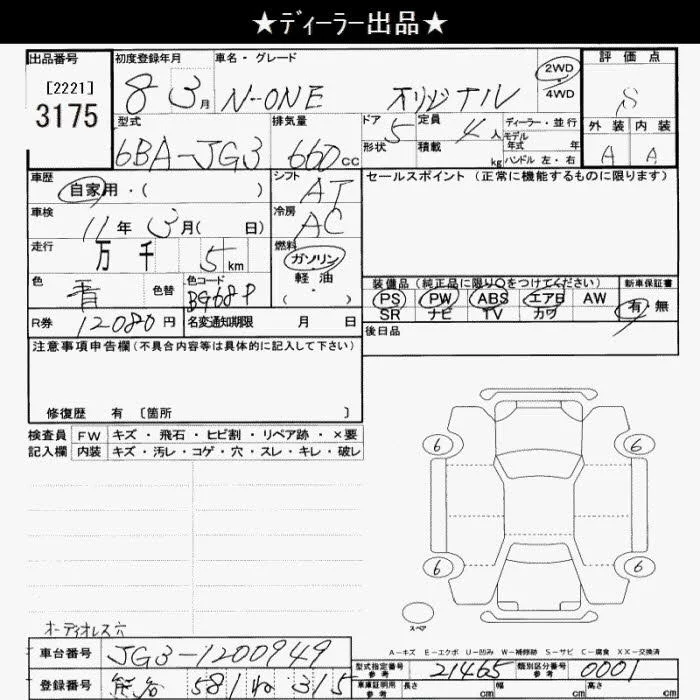 ★ディーラー出品★
出品番号 初度登録年月 車名・グレード 2WD 4WD 評価点
[2221] 3175 8 3月 N-ONE オリジナル S
型式 排気量 ドア 形状 5 定員 4人 積載 kg ディーラー・並行 モデル 年式 年 ハンドル 左・右 外装 内装
6BA-JG3 660cc A A
車歴 自家用・( ) シフト AT セールスポイント (正常に機能するものに限ります)
車検 11年3月( 日) 冷房 AC
走行 万 千 5km 燃料 ガソリン 軽油 ・( )
色 青 色替 色コード BG68P 装備品 (純正品に限り○をつけてください) 新車保証書
PS PW ABS エアB AW 有 無
SR ナビ TV カワ
R券 12080円 名変通知期限 月 日 後日品
注意事項申告欄(不具合内容等は具体的に記入して下さい)
修復歴 有 〔箇所 〕
検査員 FW キズ・飛石・ヒビ割・リペア跡・×要
記入欄 内装 キズ・汚レ・コゲ・穴・スレ・キレ・破レ
6 6
6 6
スペア
オーディオレス穴
A-キズ E-エクボ U-凹み W-補修跡 S-サビ C-腐食 XX-交換済
車台番号 JG3-1200949 型式指定番号 参考 21465 類別区分番号 参考 0001
登録番号 581 315 車庫証明用 参考 長さ cm 幅 cm 高さ cm